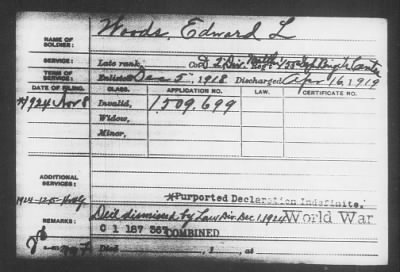 Woods, Edward L
NAME OF SOLDIER:
SERVICE:
Late rank,
TERM OF SERVICE:
Enlisted Dec 5, 1918 Discharged Apr 16, 1919
DATE OF FILING. CLASS. APPLICATION NO. LAW. CERTIFICATE NO.
1924 Nov 8 Invalid, 1,509,699
Widow,
Minor,
ADDITIONAL SERVICES:
*Purported Declaration Indefinite.
1924-12-5
REMARKS:
Decl dismissed by Law Div. Dec 1, 1924 World War
C 1 187 367 COMBINED
Died , 1 , at